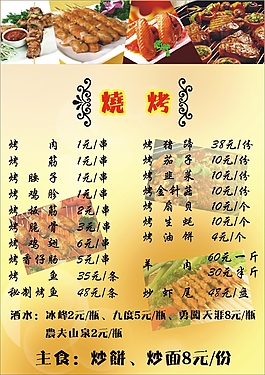 燒烤
烤 肉 1元/串
烤 筋 1元/串
烤 腰子 1元/串
烤 鸡胗 1元/串
烤 板筋 2元/串
烤 脆骨 3元/串
烤 鸡翅 6元/串
烤香仔肠 5元/串
烤 鱼 35元/条
秘制烤鱼 48元/条
烤 猪蹄 38元/份
烤 茄子 10元/份
烤 韭菜 10元/份
烤金针菇 10元/份
烤 扇贝 10元/个
烤 生蚝 10元/个
烤 油饼 4元/个
羊 肉 60元一斤
30元半斤
炒虾尾 48元/盆
酒水：冰峰2元/瓶、九度5元/瓶、勇闯天涯8元/瓶
農夫山泉2元/瓶
主食：炒餅、炒面8元/份